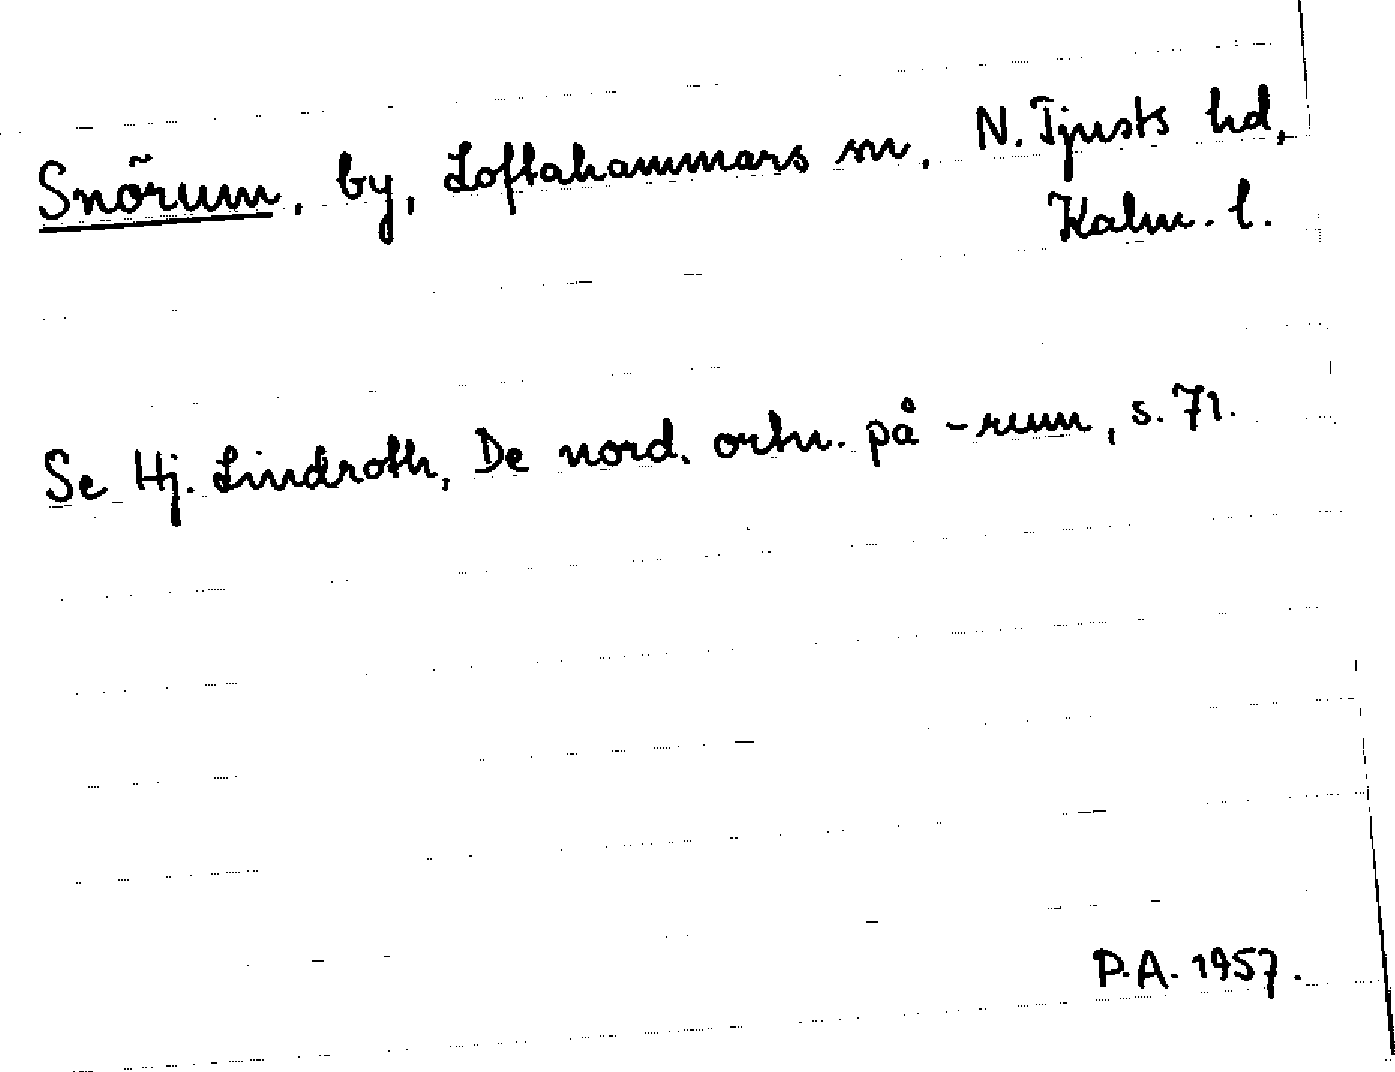 Snörum, by, Loftahammars sn, N. Tjusts hd,
Kalm. l.
Se Hj. Lindroth, De nord. ortn. på -rum, s. 71.
P.A. 1957.